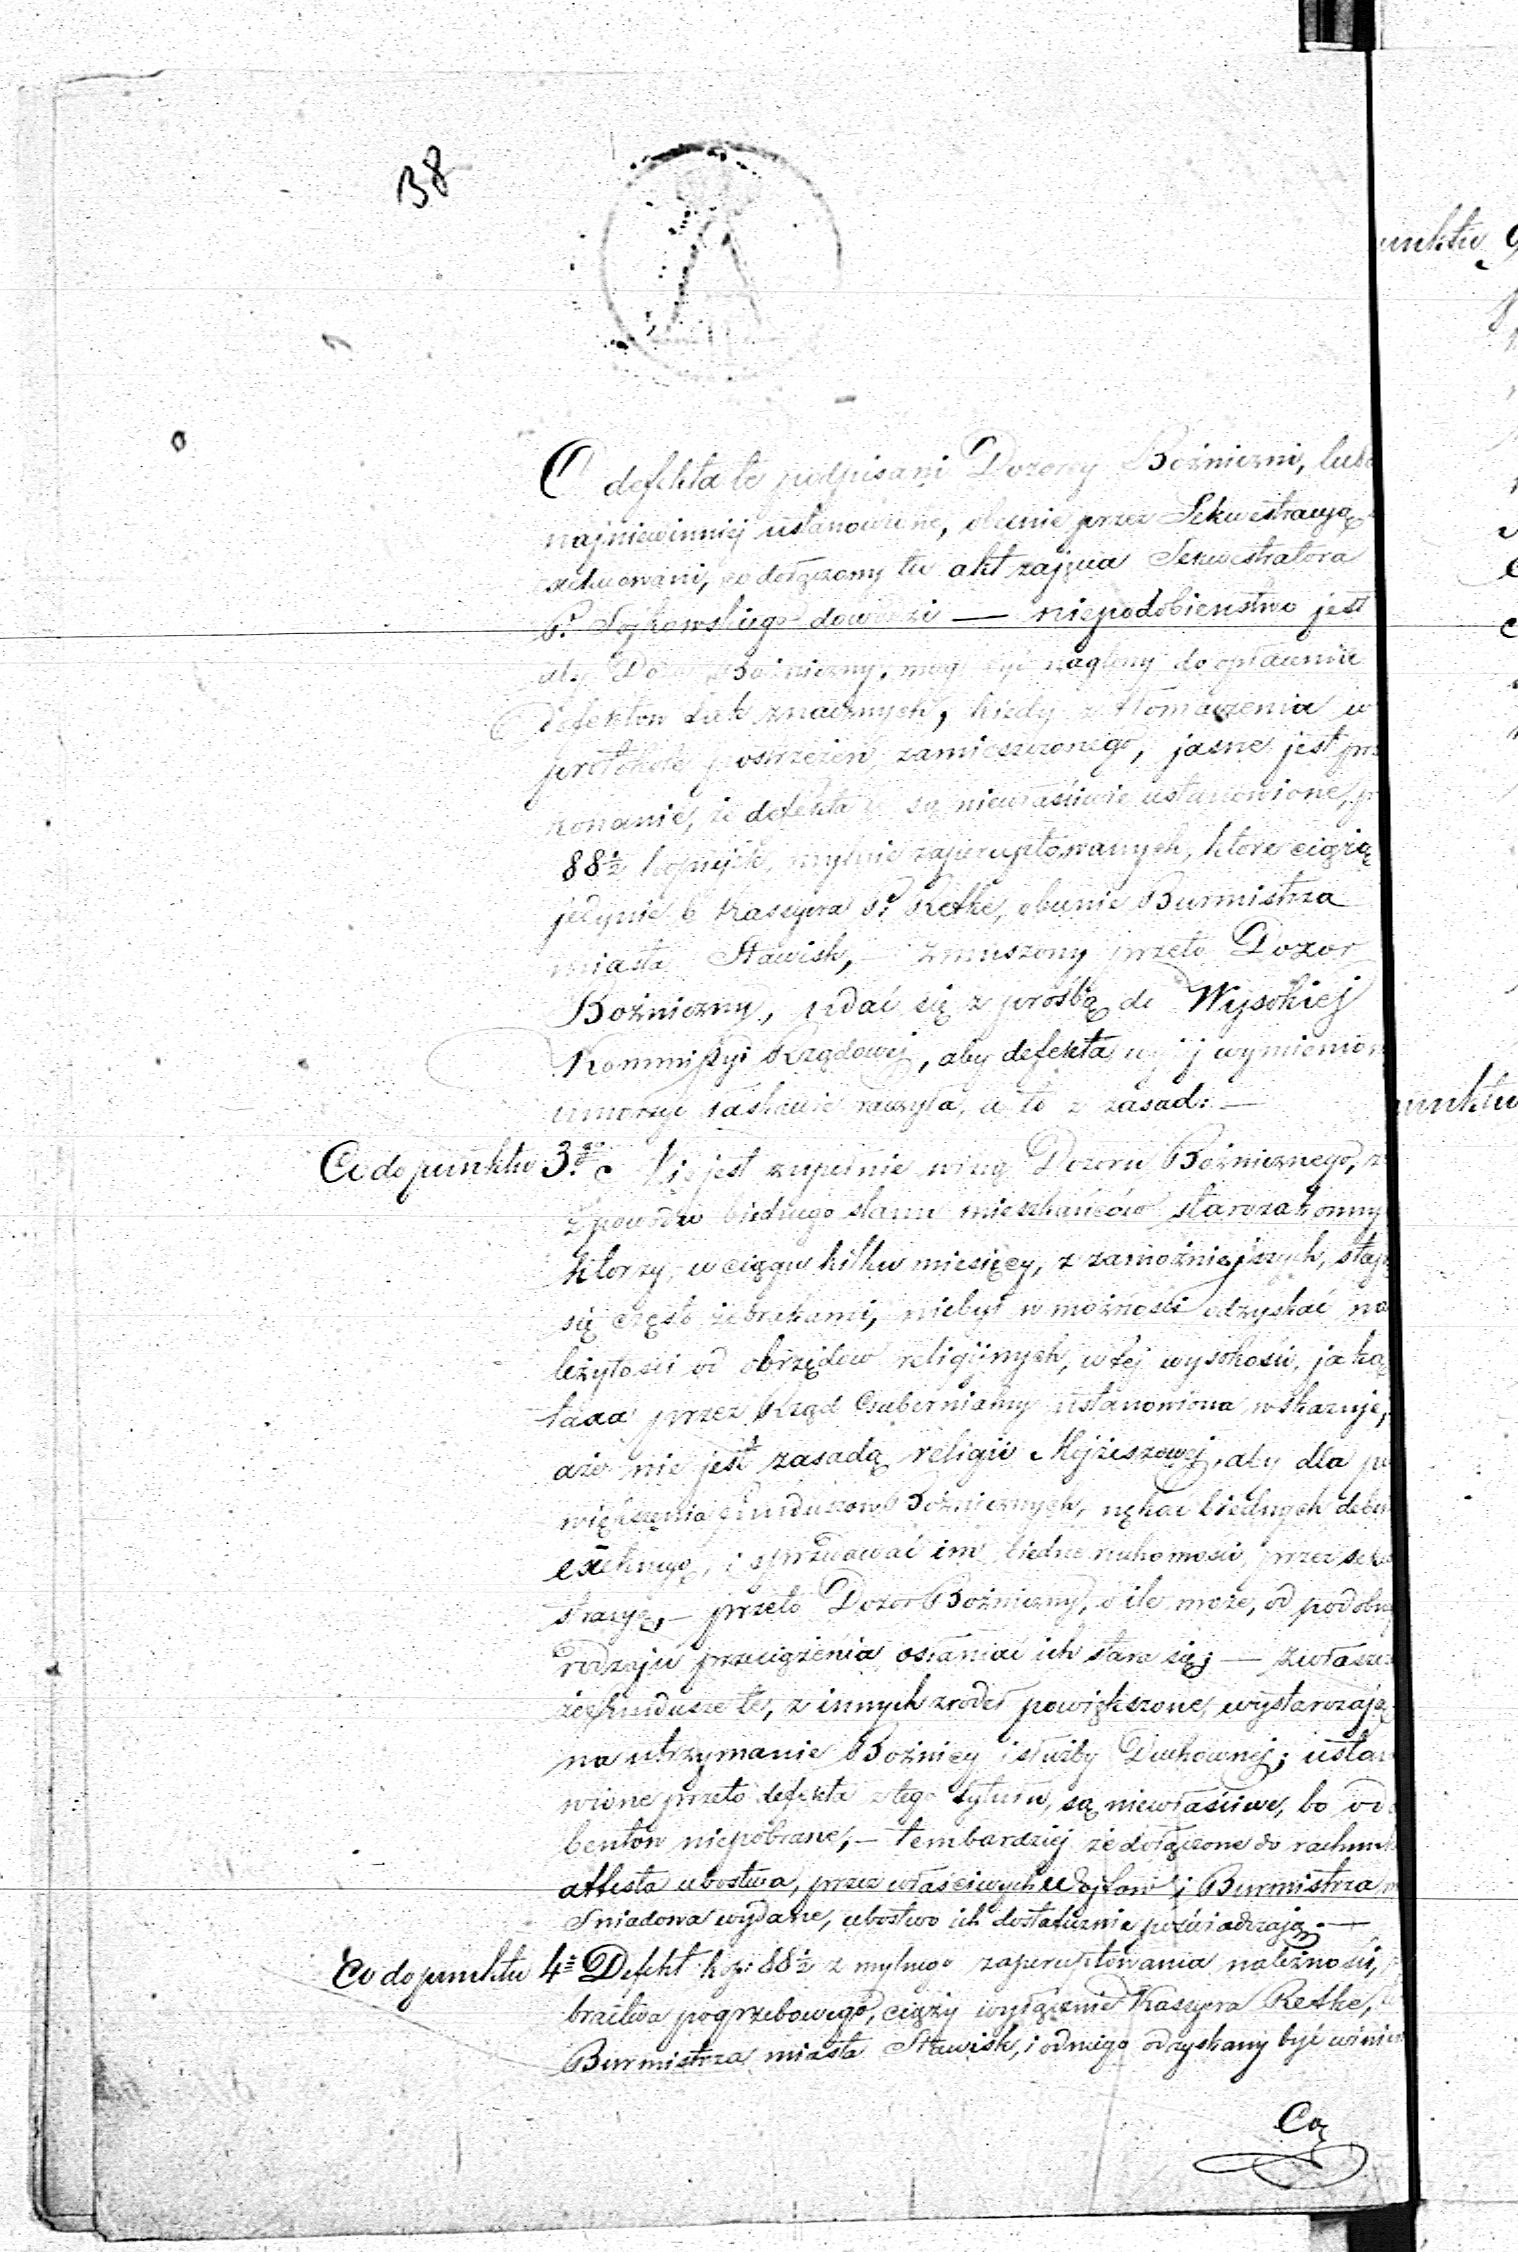 38
O defekta te podpisani Dozorcy Bożniczni, lubo
najniewinniej ustanowione, obecnie przez Sekwestracyą
exekwowani, co dołączony tu akt zajęcia Sekwestratora
P. dowodzi — niepodobieństwo jest
aby Dozór Bożniczny, mógł być naglony do opłacenia
defektów tak znacznych, kiedy z tłomaczenia w
protokole postrzeżeń zamieszczonego, jasne jest prze
konanie, że defekta te są niewłaściwie ustanowione, p
88½ kopiejek, mylnie zaperceptowanych, które ciążą
jedynie b. Kasyera P. Rethe, obecnie Burmistrza
miasta Stawisk, — zmuszony przeto Dozor
Bożniczny, udać się z prośbą do Wysokiej
Kommissyi Rządowej, aby defekta wyżej wymienion
umorzyć łaskawie raczyła, a to z zasad: —
Co do punktu 3go Nie jest zupełnie winą Dozoru Bożnicznego, że
z powodu biednego stanu mieszkańców starozakonny
którzy w ciągu kilku miesięcy, z zamożniejszych, stają
się często żebrakami, niebył w możności odzyskać na
leżytości od obrzędów religijnych, w tej wysokości, jaką
taxa przez Rząd Gubernialny ustanowiona wskazuje,
a że nie jest zasadą religii Mojżeszowej, aby dla po
większenia funduszow Bożnicznych, nękać biednych
exekucyą, i sprzedawać im biedne ruchomości, przez sek
stracyą, — przeto Dozor Bożniczny, o ile może, od podobne
rodzaju przeciążenia osłaniać ich stara się; — zwłaszc
że fundusze te, z innych źrodeł powiększone, wystarczają
na utrzymanie Bożnicy i służby Duchownej; ustan
wione przeto defekta z tego tytułu, są niewłaściwe, bo od
bentow niepobrane, — tembardziej że dołączone do rachunk
attesta ubostwa, przez właściwych Wojtow i Burmistrza
Sniadowa wydane, ubostwo ich dostatecznie poświadczają. —
Co do punktu 4o Defekt kop: 88½ z mylnego zaperceptowania należności,
bractwa pogrzebowego, ciąży wyłącznie Kasyera Rethe,
Burmistrza miasta Stawisk, i od niego odzyskany być winien
Co
unktu 9
unktu